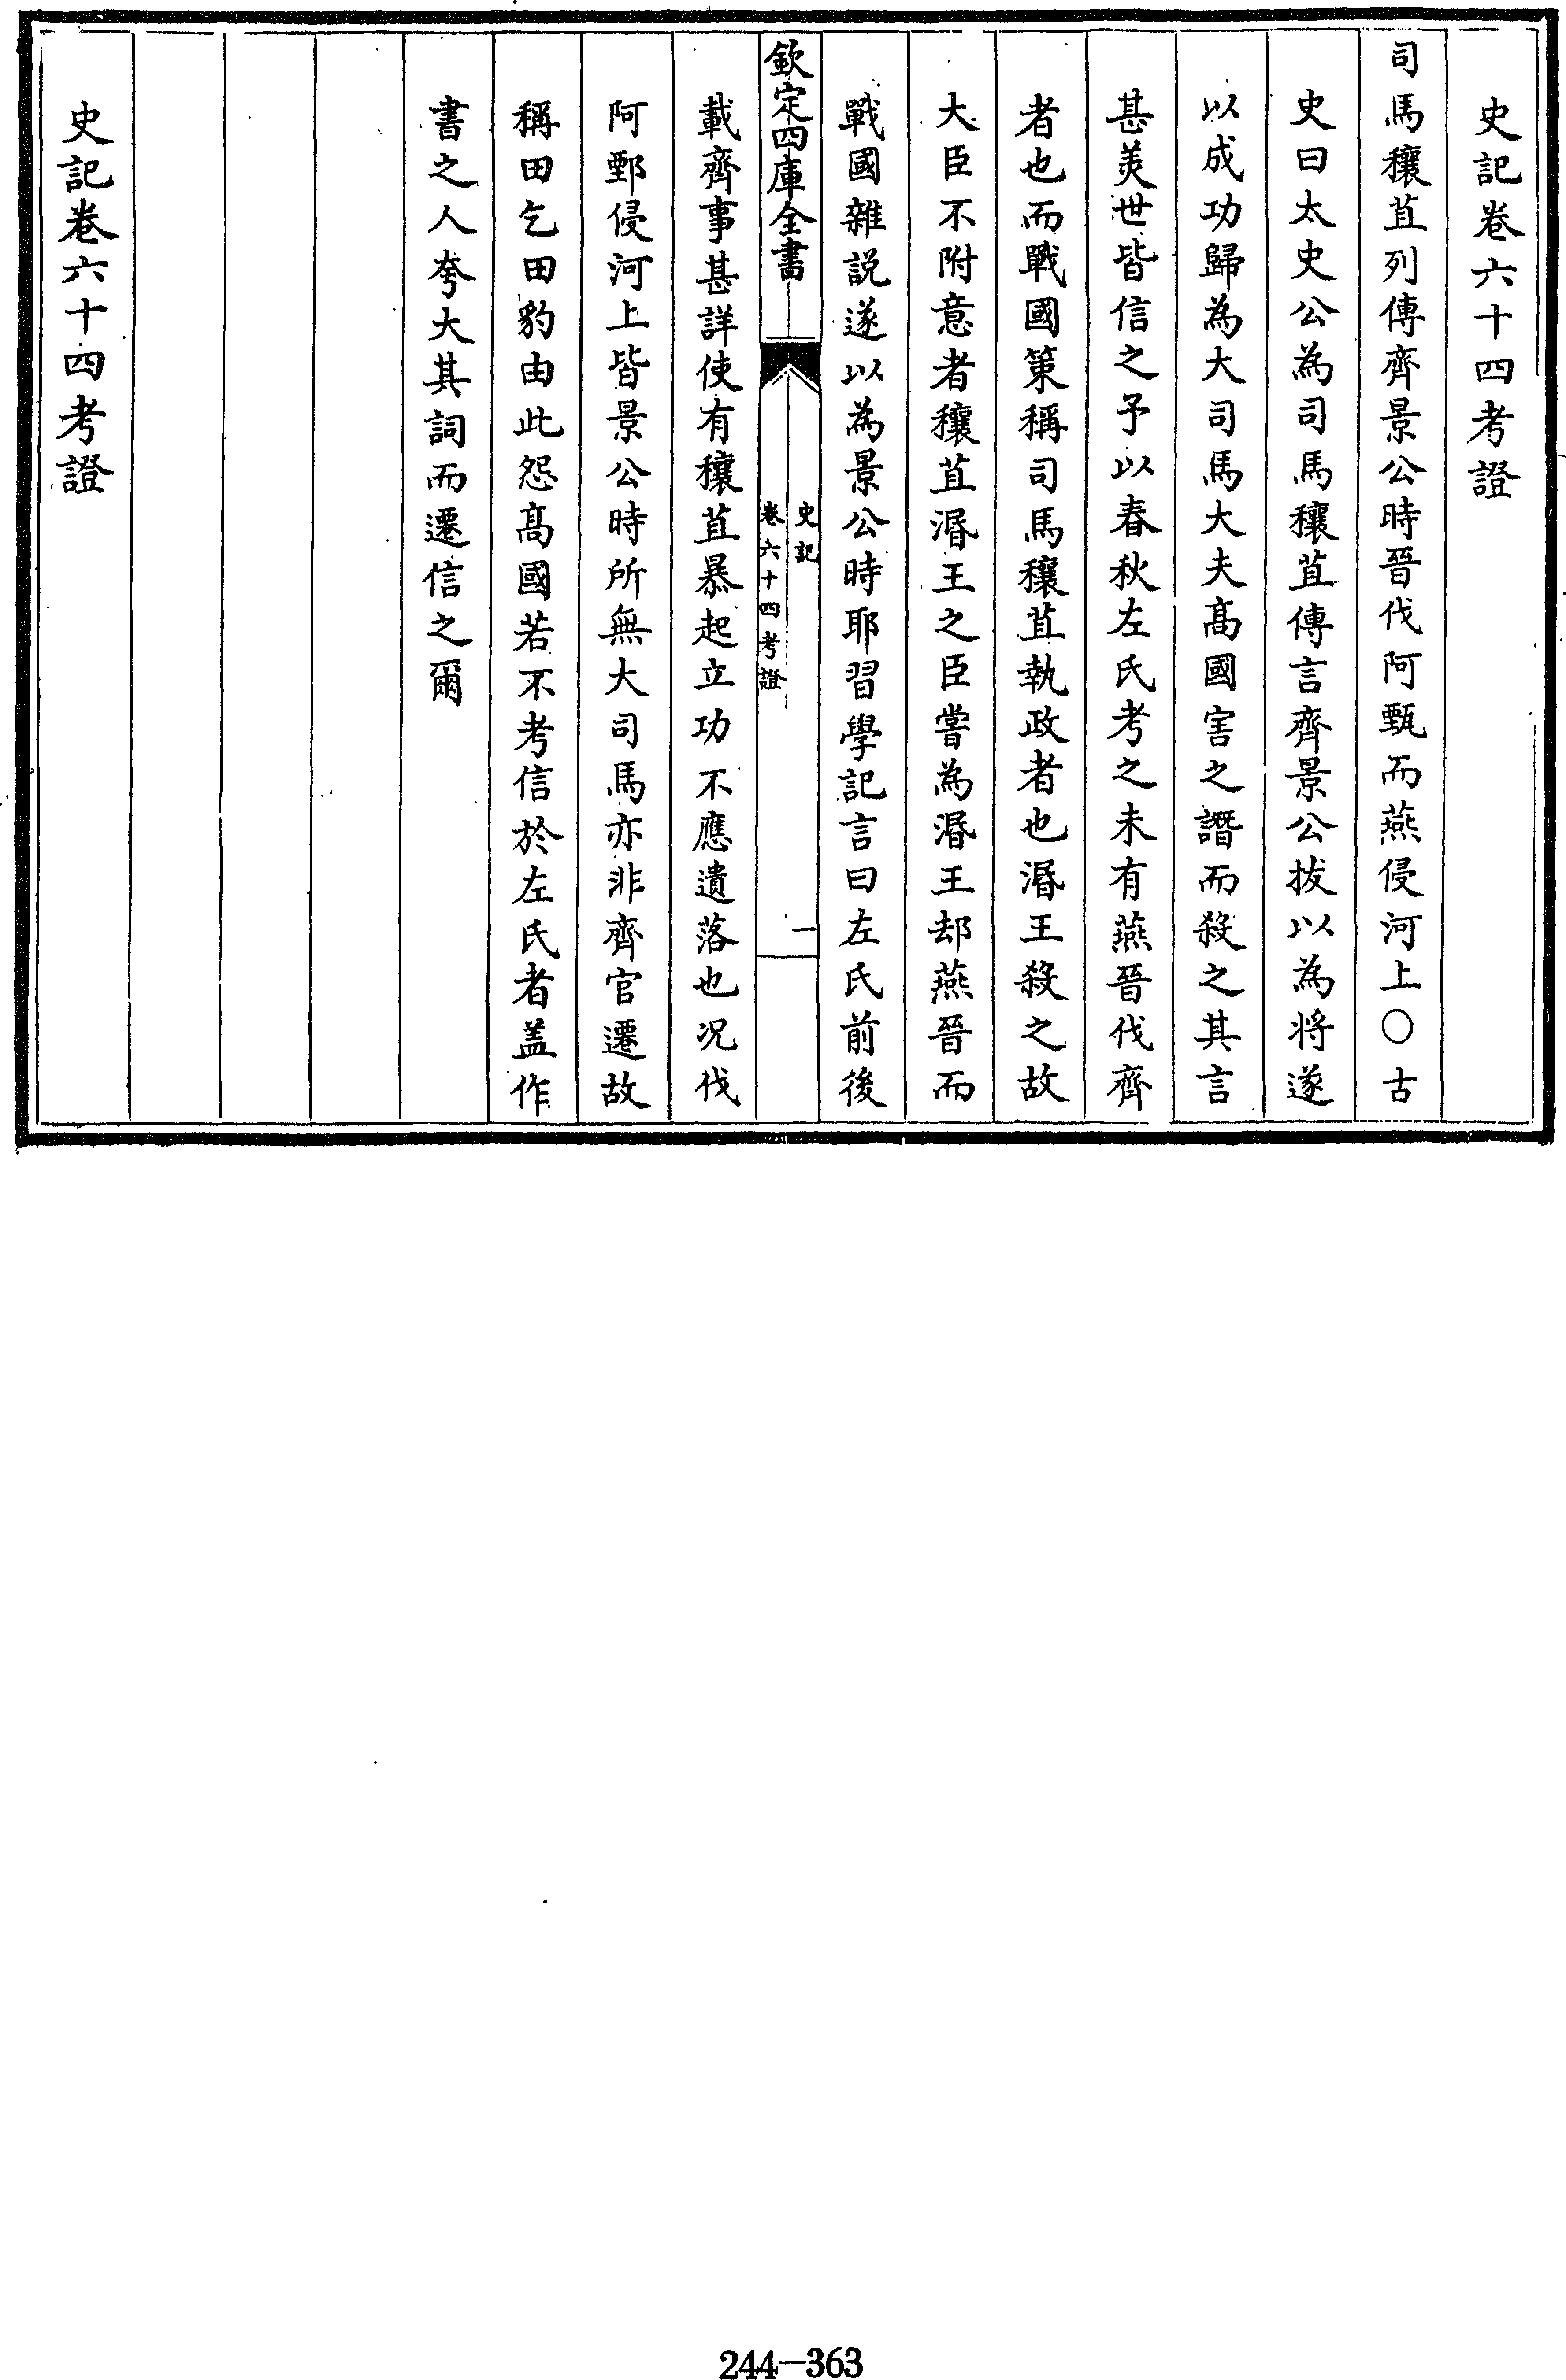 史記卷六十四考證
司馬穰苴列傳齊景公時晉伐阿甄而燕侵河上○古
史曰太史公為司馬穰苴傳言齊景公拔以為將遂
以成功歸為大司馬大夫高國害之譖而殺之其言
甚美世皆信之予以春秋左氏考之未有燕晉伐齊
者也而戰國策稱司馬穰苴執政者也湣王殺之故
大臣不附意者穰苴湣王之臣嘗為湣王却燕晉而
戰國雜説遂以為景公時耶習學記言曰左氏前後
欽定四庫全書
史記
卷六十四考證
一
載齊事甚詳使有穰苴暴起立功不應遺落也况伐
阿鄄侵河上皆景公時所無大司馬亦非齊官遷故
稱田乞田豹由此怨高國若不考信於左氏者盖作
書之人夸大其詞而遷信之爾
史記卷六十四考證
244-363